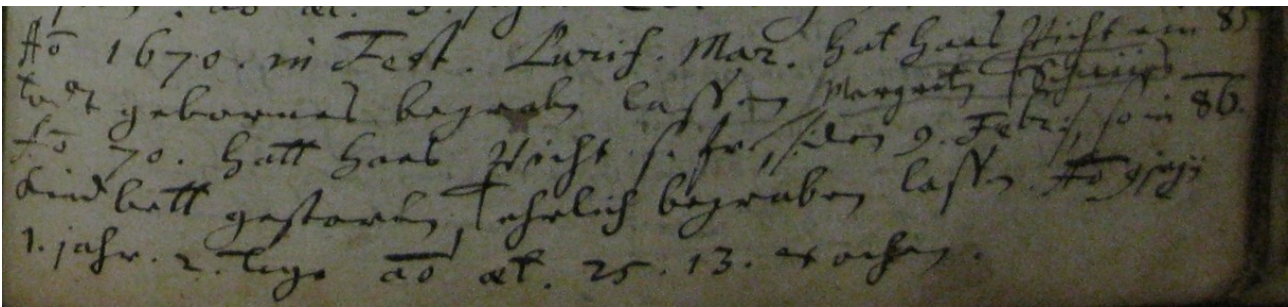 Aõ 1670. in Fest. Purif. Mar. hat Hans Picht ein 85
todt gebornes begraben lassen Margreta
Aõ 70. hatt Hans Picht s. fr, den 9. Febr: so in 86.
Kindbett gestorben, ehrlich begraben lassen. Aõ
1. jahr. 2. tage aõ æt. 25. 13. wochen.